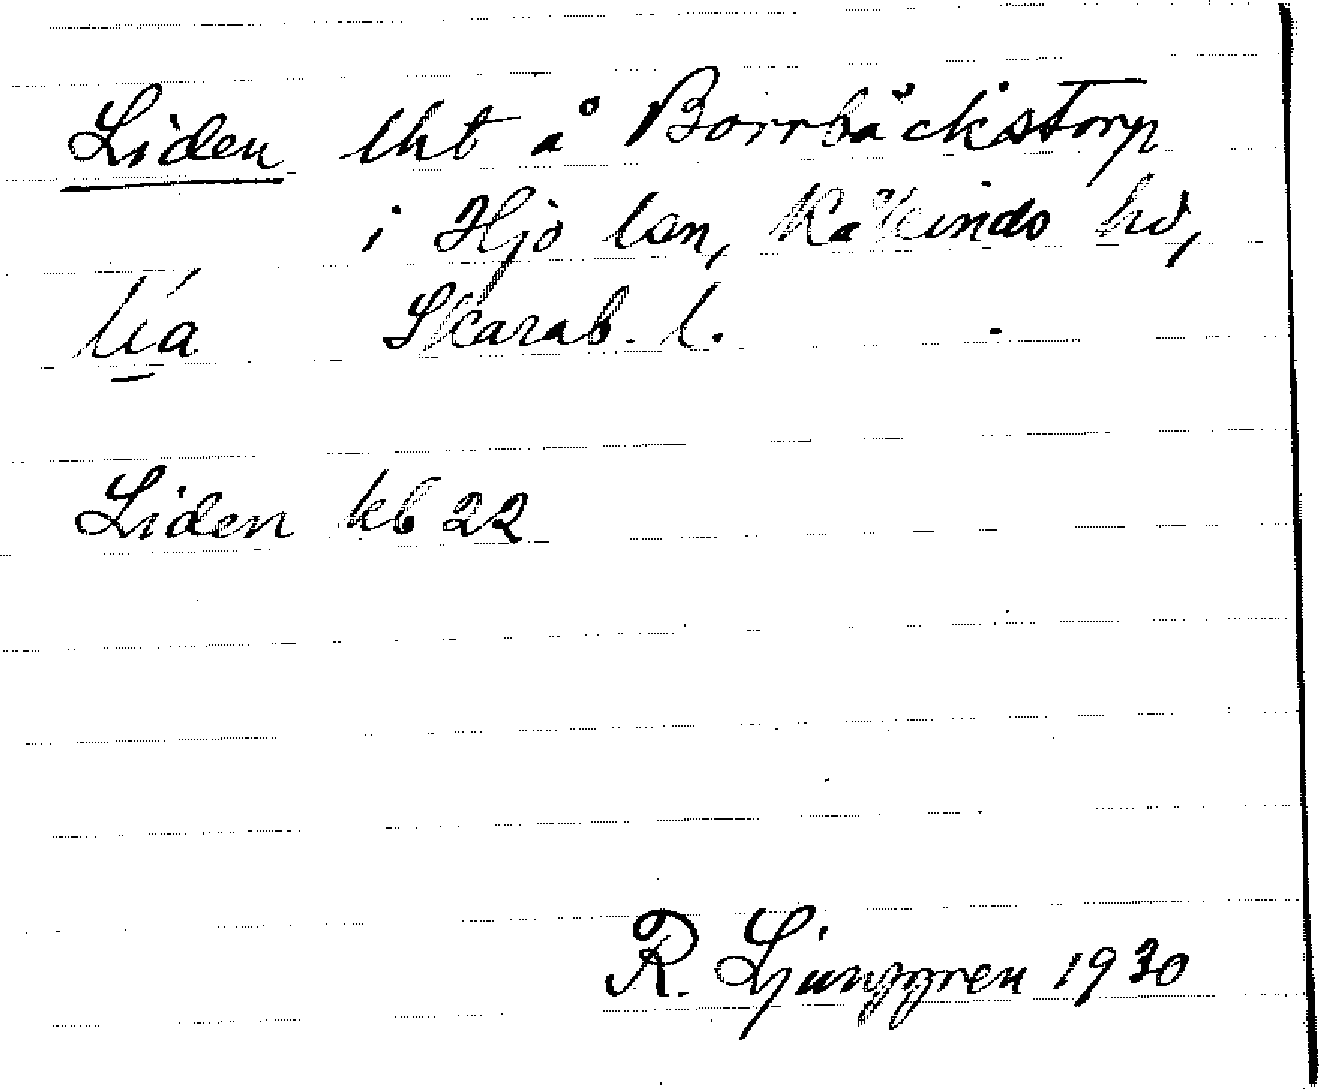 Liden lht å Borrbäckstorp
i Hjo lsn, Kåkinds hd,
lía Skarab. l.
Liden kb 22
R. Ljunggren 1930